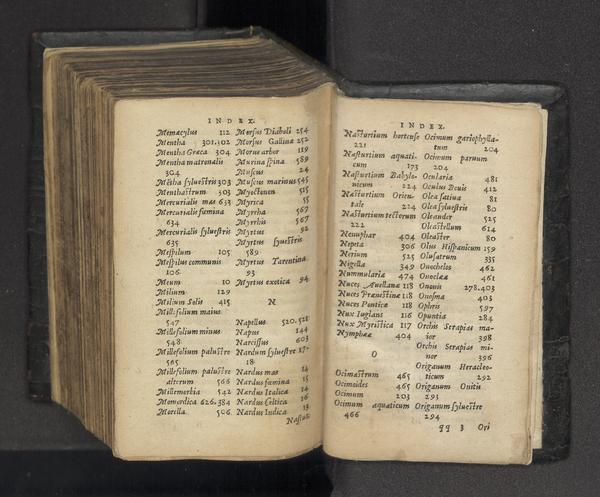 INDEX.
Memæcylus 112
Mentha 301.302
Mentha Græca 304
Mentha matronalis
304
Mētha sylvestris 303
Menthastrum 303
Mercurialis mas 633
Mercurialis fœmina
634
Mercurialis sylvestris
635
Mespilum 105
Mespilus communis
106
Meum 10
Milium 129
Milium Solis 415
Millefolium maius
547
Millefolium minus
548
Millefolium palustre
565
Millefolium palustre
alterum 566
Millemorbia 542
Momordica 626.384
Morilla 506
Morsus Diaboli 254
Morsus Gallinæ 252
Morus arbor 119
Murina spina 589
Muscus 24
Muscus marinus 545
Myacionon 515
Myrica 55
Myrrha 567
Myrrhis 567
Myrtus 92
Myrtus sylvestris
589
Myrtus Tarentina
93
Myrtus exotica 94
N
Napellus 520.521
Napus 144
Narcissus 603
Nardum sylvestre 17.
18
Nardus mas 14
Nardus fœmina 15
Nardus Italica 14
Nardus Celtica 16
Nardus Indica 13
Nastur.
INDEX.
Nasturtium hortense
221
Nasturtium aquati-
cum 173
Nasturtium Babylo-
nicum 224
Nasturtium Orien-
tale 224
Nasturtium tectorum
222
Nenuphar 404
Nepeta 306
Nerium 525
Nigella 349
Nummularia 474
Nuces Auellanæ 118
Nuces Prænestinæ 118
Nuces Ponticæ 118
Nux Iuglans 116
Nux Myristica 117
Nymphæa 404
O
Ocimastrum 465
Ocimoides 465
Ocimum 203
Ocimum aquaticum
466
Ocimum gariophylla-
tum 204
Ocimum paruum
204
Ocularia 481
Oculus Bouis 412
Olea satiua 81
Olea sylvestris 80
Oleander 525
Oleastellum 614
Oleaster 80
Olus Hispanicum 159
Olusatrum 335
Onochelos 462
Onoclea 461
Ononis 278.403
Onosma 403
Ophris 597
Opuntia 284
Orchis Serapias ma-
ior 398
Orchis Serapias mi-
nor 396
Origanum Heracleo-
ticum 292
Origanum Onitis
293
Origanum sylvestre
294
qq 3 Ori